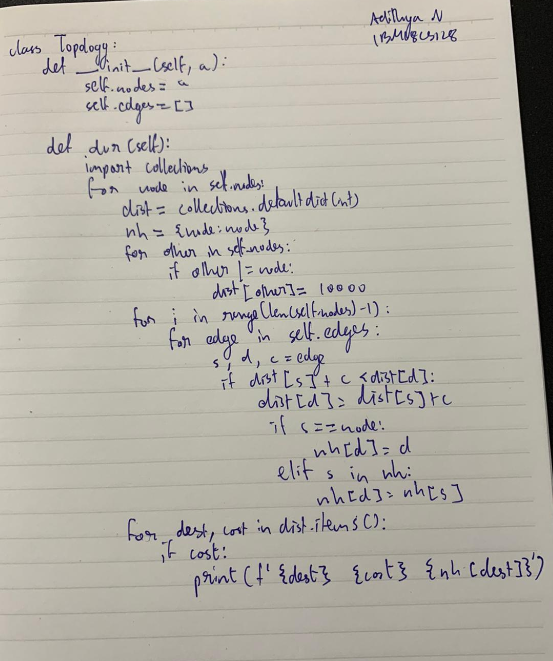 Adithya N
1BM18CS128
class Topology:
def __init__(self, a):
self.nodes = a
self.edges = []
def dvr(self):
import collections
for node in self.nodes:
dist = collections.defaultdict(int)
nh = {node:node}
for other in self.nodes:
if other != node:
dist[other] = 10000
for i in range(len(self.nodes)-1):
for edge in self.edges:
s, d, c = edge
if dist[s] + c < dist[d]:
dist[d] = dist[s]+c
if s == node:
nh[d] = d
elif s in nh:
nh[d] = nh[s]
for dest, cost in dist.items():
if cost:
print(f' {dest} {cost} {nh[dest]}')